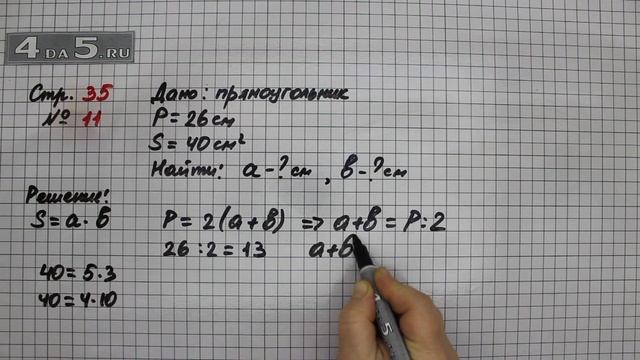 4 DA 5.RU
Стр. 35
№ 11
Дано: прямоугольник
P = 26 см
S = 40 см²
Найти: a - ? см, в - ? см
Решение:
S = a · в
P = 2(a + в) => a + в = P : 2
26 : 2 = 13
a + в
40 = 5·3
40 = 4·10
5